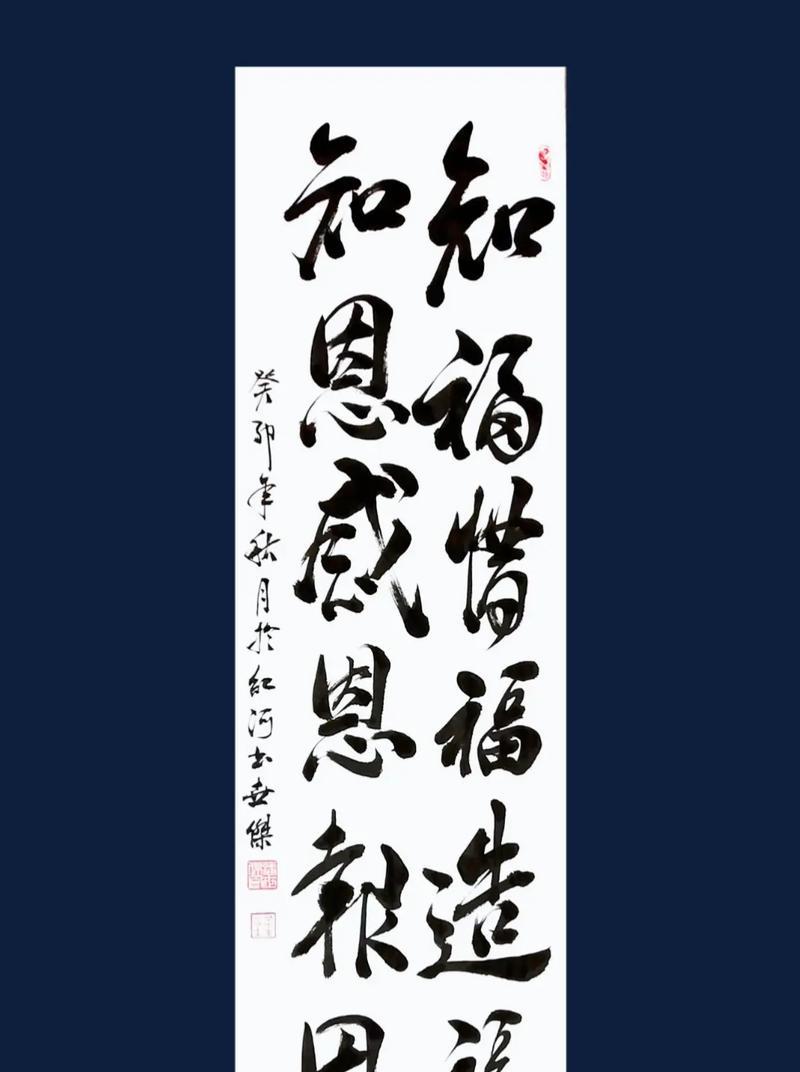 知福惜福造福
知恩感恩報恩
癸卯年秋月於紅河书世傑